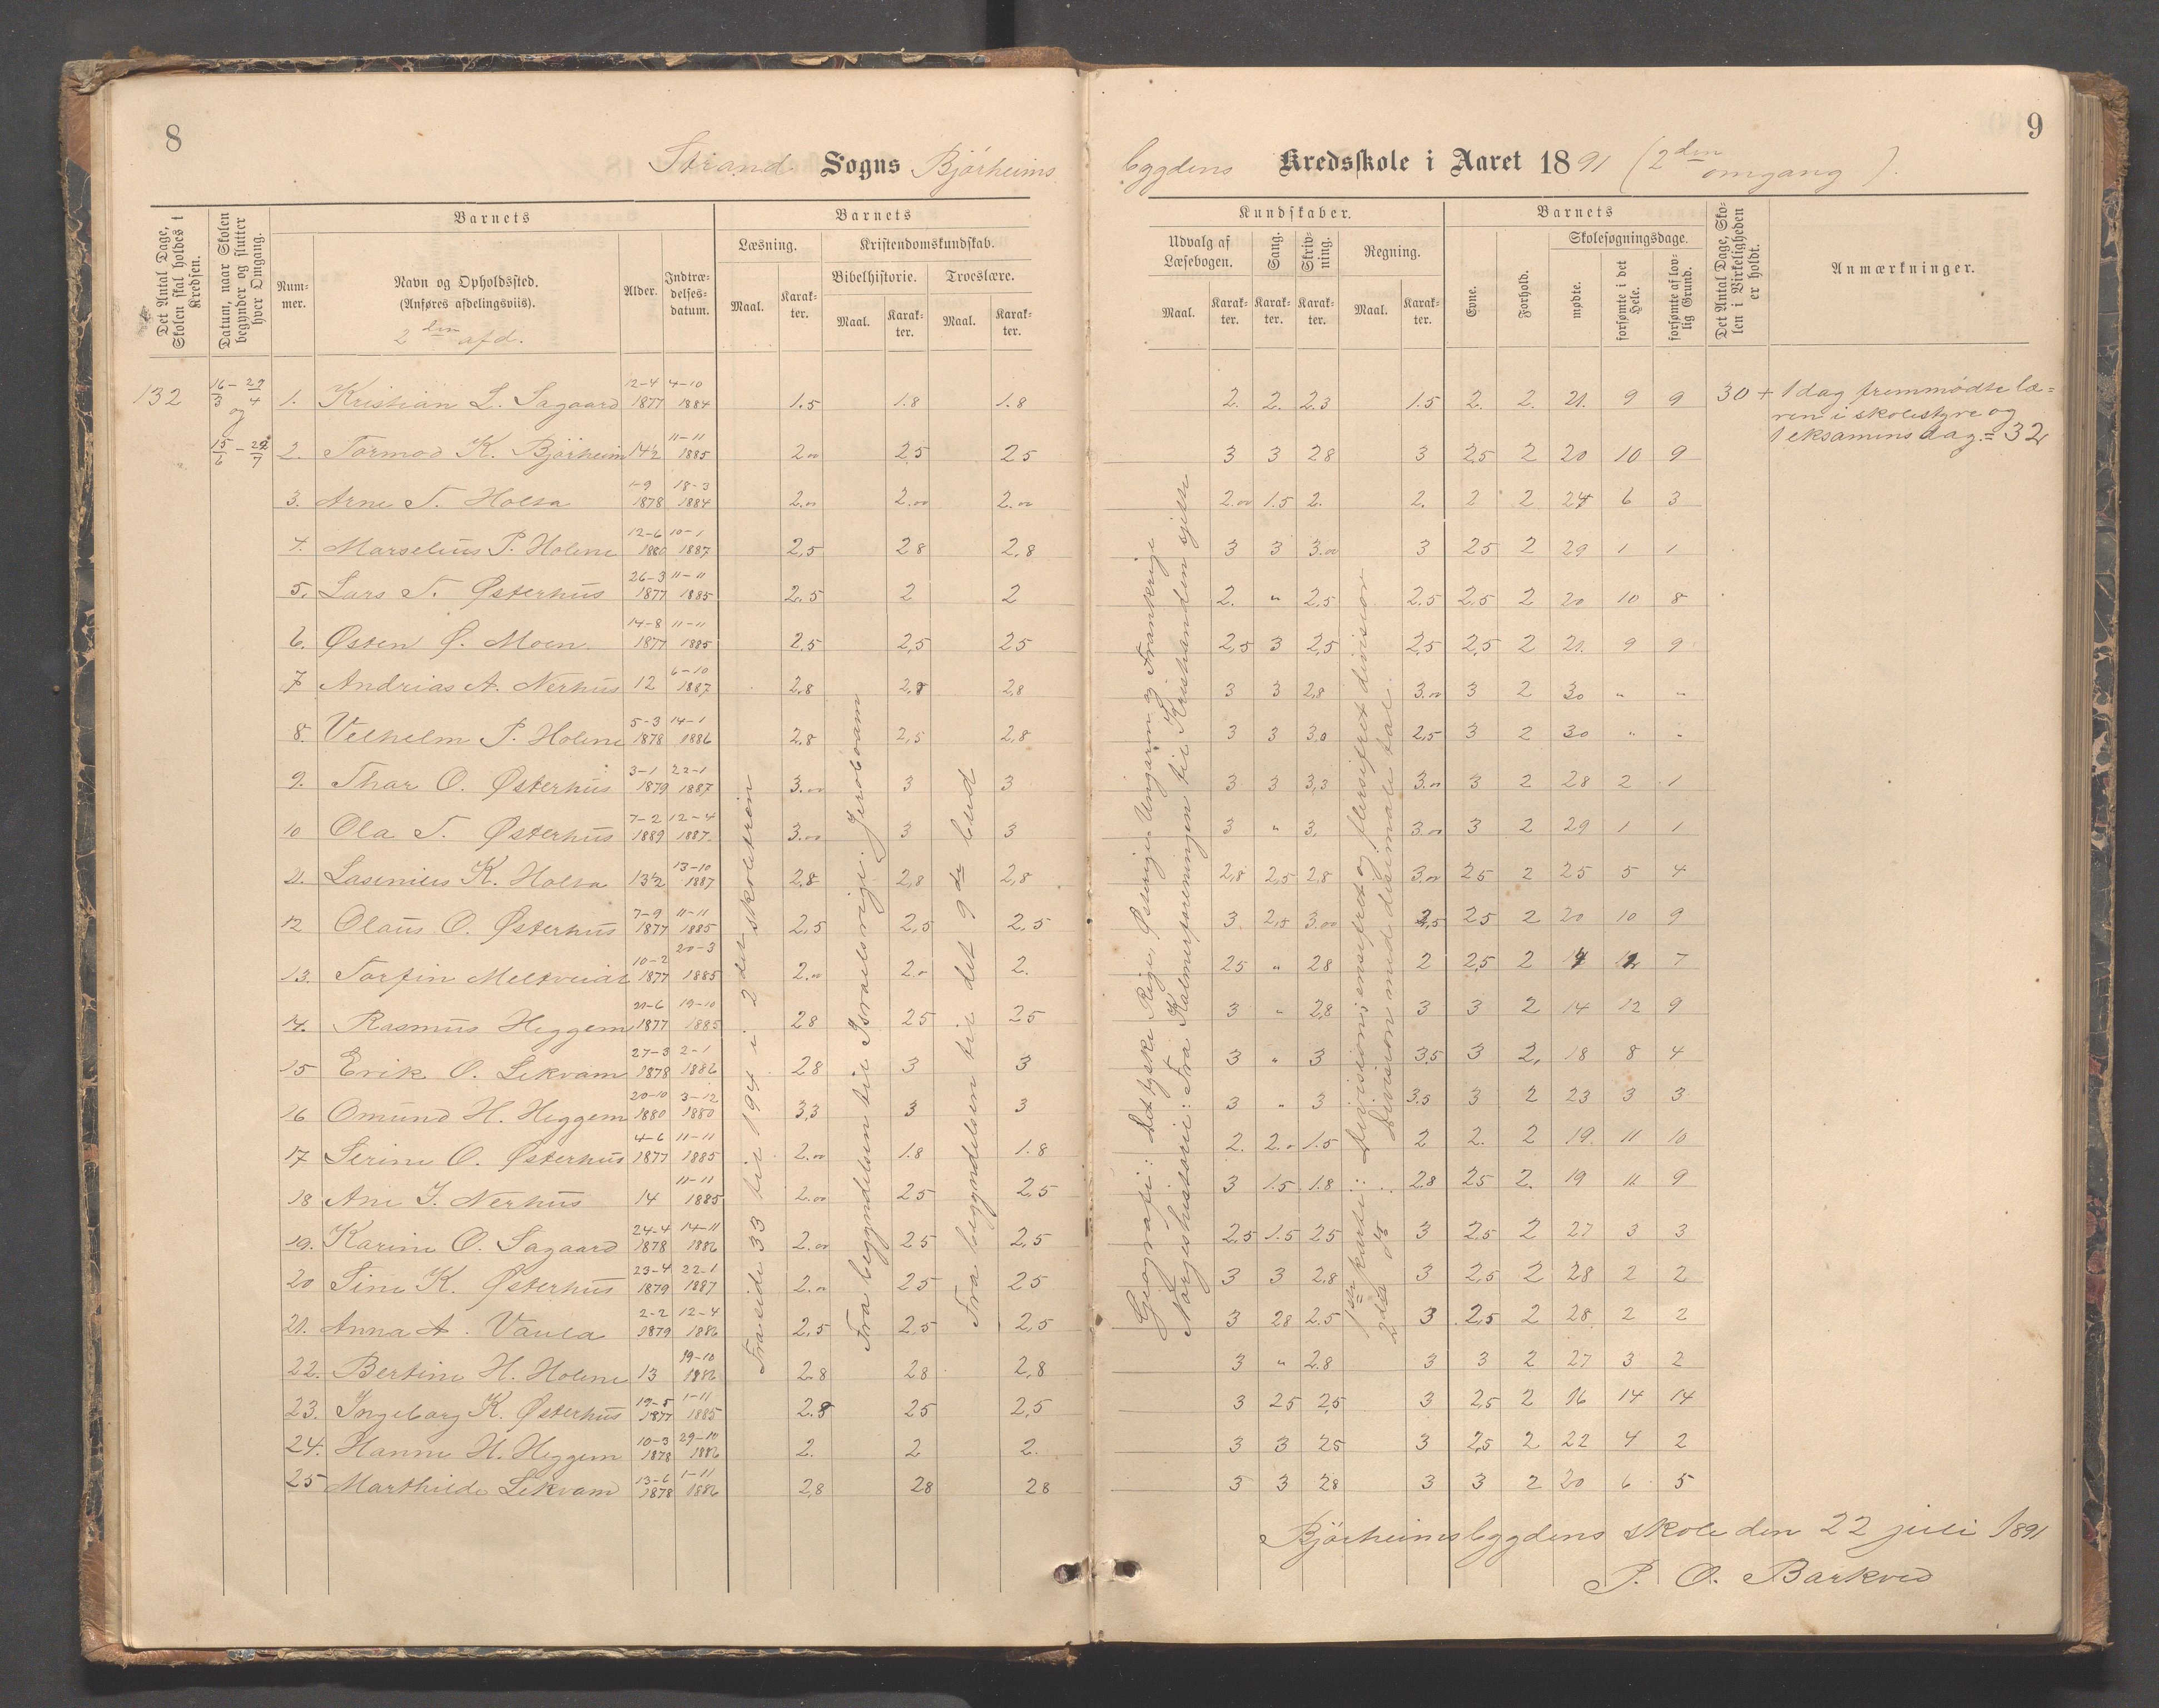 8
9
Strand Sogns Bjørheims
bygdens Kredsskole i Aaret 1891 (2den omgang).
Det Antal Dage, Skolen skal holdes i Kredsen.
Datum, naar Skolen begynder og slutter hver Omgang.
Barnets
Nummer.
Navn og Opholdssted.
(Anføres afdelingsviis).
2den afd.
Alder.
Indtrædelsesdatum.
Barnets
Læsning.
Kristendomskundskab.
Bibelhistorie.
Troeslære.
Maal. Karakter. Maal. Karakter. Maal. Karakter.
Kundskaber.
Udvalg af Læsebogen.
Sang.
Skrivning.
Regning.
Maal. Karakter. Karakter. Karakter. Maal. Karakter.
Barnets
Evne.
Forhold.
Skolesøgningsdage.
mødte.
forsømte i det Hele.
forsømte af lovlig Grund.
Det Antal Dage, Skolen i Virkeligheden er holdt.
Anmærkninger.
132
16/3 – 29/4
og
15/6 – 22/7
1. Kristian L. Sagaard 12-4 1877 4-10 1884 1.5 1.8 1.8 2. 2. 2.3 1.5 2. 2. 21. 9 9 30
2. Tormod K. Bjørheim 14½ 11-11 1885 2.00 25 25 3 3 28 3 2.5 2 20 10 9
3. Arne T. Holta 1-9 1878 18-3 1884 2.00 2.00 2.00 2.00 1.5 2. 2. 2 2 24 6 3
4. Marselius P. Holene 12-6 1880 10-1 1887 2,5 28 2,8 3 3 3.00 3 25 2 29 1 1
5. Lars T. Østerhus 26-3 1877 11-11 1885 2.5 2 2 2. " 2,5 2,5 2,5 2 20 10 8
6. Østen Ø. Moen. 14-8 1877 11-11 1885 2.5 2,5 25 2,5 3 2,5 2,5 2,5 2 21. 9 9
7 Andrias A. Nerhus 12 6-10 1887 2,8 2,8 2,8 3 3 2,8 3.00 3 2 30 " "
8. Velhelm P. Holene 5-3 1878 14-1 1886 2.8 2,5 2,8 3 3 3.0 2,5 3 2 30 " "
9. Thor O. Østerhus 3-1 1879 22-1 1887 3.00 3 3 3 3 3,3 3.00 3 2 28 2 1
10 Ola T. Østerhus 7-2 1889 12-4 1887. 3.00 3 3 3 " 3. 3.00 3 2 29 1 1
11. Lasenius K. Holta 13½ 13-10 1887 2,8 2,8 2,8 2,8 2,5 2,8 3.00 25 2 25 5 4
12 Olaus O. Østerhus 7-9 1877 11-11 1885 2,5 2,5 2,5 3 2,5 3.00 2,5 25 2 20 10 9
13. Torfin Meltveidt 10-2 1877 20-3 1885 2.00 2.0 2. 25 " 28 2 2,5 2 12 7
14. Rasmus Heggem 21-6 1877 19-10 1885 28 25 25 3 " 2,8 3 3 2 14 12 9
15 Erik O. Lekvam 27-3 1878 2-1 1886 28 3 3 3 " 3 3,5 3 2, 18 8 4
16 Omund H. Heggem 20-10 1880 3-12 1880 3,3 3 3 3 " 3 3.5 3 2 23 3 3
17 Serine O. Østerhus 4-6 1877 11-11 1885 2.00 1.8 1.8 2. 2.0 1.5 2 2. 2 19. 11 10
18 Ane J. Nerhus 14 11-11 1885 2.00 25 2,5 3 1.5 1.8 2.8 25 2. 19 11 9
19. Karine O. Sagaard 24-4 1878 14-11 1886 2.00 25 2,5 2,5 1.5 25 3 2.5 2 27 3 3
20 Sine K. Østerhus 23-4 1879 22-1 1887 2.00 25 25 3 3 2,8 3 2,5 2 28 2 2
21. Anna A. Vaula 2-2 1879 12-4 1886 2,5 2,5 2,5 3 28 2.5 3 2,5 2 28. 2 2
22. Bertine H. Holene 13 19-10 1886 2.8 28 2,8 3 " 2.8 3 3 2 27 3 2
23. Ingeborg K. Østerhus 19-5 1877 1-11 1885 2.8 25 2,5 3 25 2,5 3 2,5 2 16 14 14
24. Hanne H. Heggem 10-3 1878 29-10 1886 2. 2 2. 3 3 25 3 2,5 2 22 4 2
25 Marthilde Lekvam 13-6 1878 1-11 1886 2,8 28 28 3 3 28 3 3 2 20 6 5
Fra side 33 til 194 i 2det skoletrin
Fra begyndelsen til Israelsrige. Jeroboam
Fra begyndelsen til det 9de bud
Geografi: Det tyske Rige, Østerige-Ungarn og Frankrige
Norgeshistorie: Fra Kalmerforeningen til Kristianden sjette
1ste parti: Division; ensifret og flersifret division
2det do Division med desimale tal.
+ 1 dag fremmødte læreren i skolestyre og
1 eksamensdag. = 32
Bjørheimsbygdens skole den 22 juli 1891
P. O. Barkved